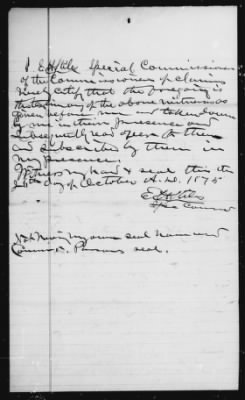 I E H Stiles Special Commissioner
of the Commissioners of Claims
hereby certify that the foregoing is
the testimony of the above witness as
given before me and taken down
by me in their presence and
subsequently read over to them
and subscribed by them in
my presence.
Witness my hand & seal this the
day of October A.D. 1875
E H Stiles
Spe Commr
Not having my own seal have used
Commr. Parsons seal.